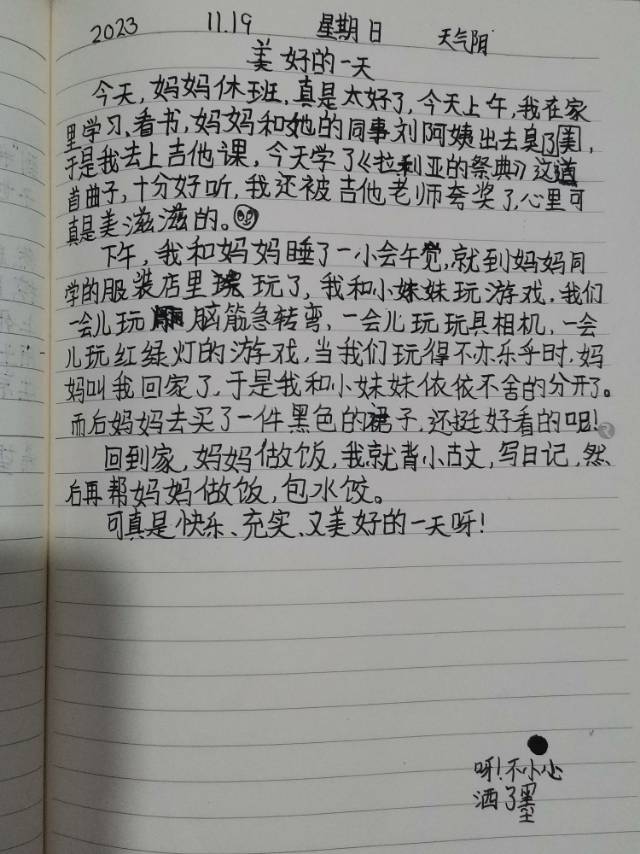 2023 11.19 星期日 天气阴
美好的一天
今天,妈妈休班,真是太好了,今天上午,我在家
里学习、看书,妈妈和她的同事刘阿姨出去臭了美,
于是我去上吉他课,今天学了《拉利亚的祭典》这道
首曲子,十分好听,我还被吉他老师夸奖了,心里可
真是美滋滋的。
下午,我和妈妈睡了一小会午觉,就到妈妈同
学的服装店里玩了,我和小妹妹玩游戏,我们
一会儿玩脑筋急转弯,一会儿玩玩具相机,一会
儿玩红绿灯的游戏,当我们玩得不亦乐乎时,妈
妈叫我回家了,于是我和小妹妹依依不舍的分开了。
而后妈妈去买了一件黑色的裙子,还挺好看的呢!
回到家,妈妈做饭,我就背小古文,写日记,然
后再帮妈妈做饭,包水饺。
可真是快乐、充实、又美好的一天呀!
呀!不小心
洒了墨